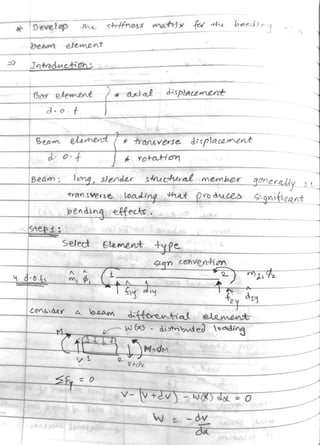 * Develop the stiffness matrix for the bending
beam element
⇒ Introduction:
Bar element * axial displacement
d.o.f
Beam element * transverse displacement
d.o.f * rotation
Beam: long, slender structural member generally
transverse loading that produces significant
bending effects.
Step 1:
Select Element type
sign convention
4 d.o.fs m̂₁ φ̂₁ 1 2 m̂₂, φ̂₂
f̂₁y d̂₁y f̂₂y d̂₂y
consider a beam differential element
M w(x) - distributed loading
M+dM
V 1 2 V+dV
ΣFy = 0
V - (V + dV) - w(x) dx = 0
W = -dv
dx